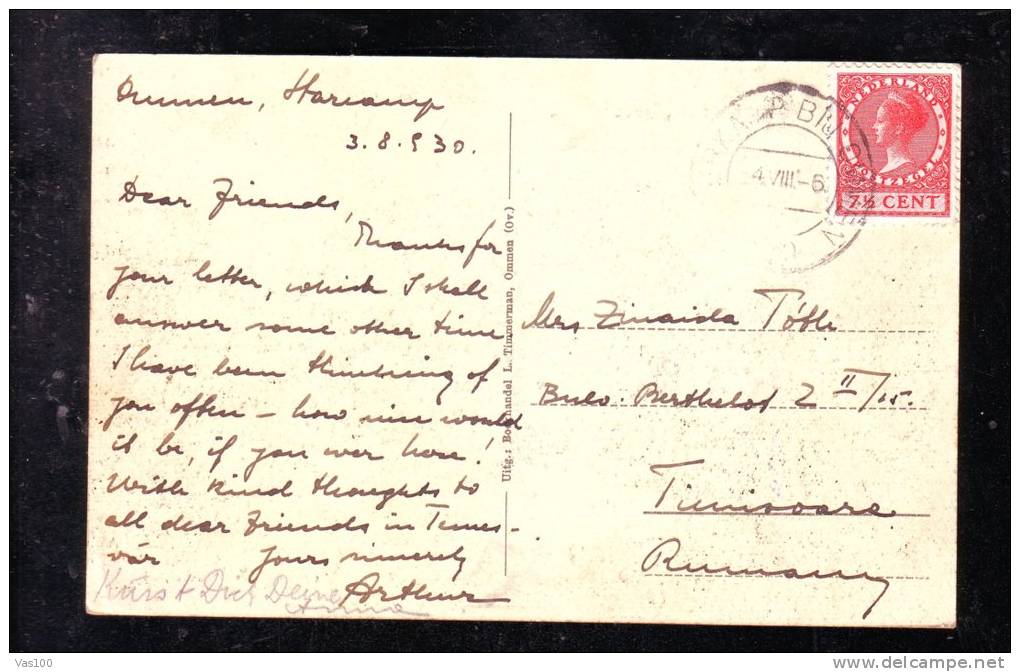 Ommen, Starcamp
3. 8. 930.
Dear Friends,
Thanks for
your letter, which I shall
answer some other time
I have been thinking of
you often – how nice would
it be, if you wer here!
With kind thoughts to
all dear Friends in Temes-
vár yours sincerely
Arthur
Küsst Dich Deine
Anna
Uitg.: Boekhandel L. Timmerman, Ommen (Ov.)
NEDERLAND
POSTZEGEL
7½ CENT
4.VIII.-6.
Mrs Zinaida Tóth
Bulv. Berthelot 2 II/15.
Timisoara
Rumany
Vas100
www.delcampe.net